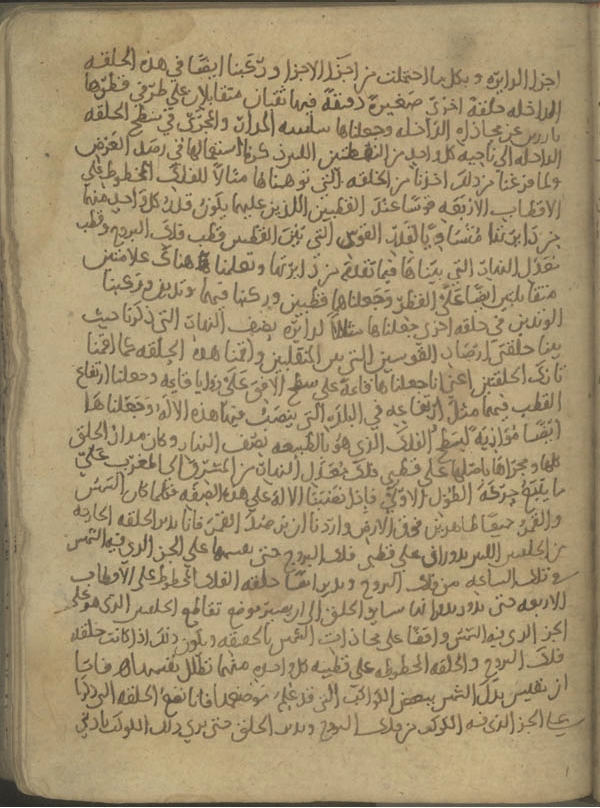 اجزا الدايره وبكل ما احتملت من اجزا الاجزا وركبنا ايضا في هذه الحلقه
الداخله حلقه اخرى صغيره دقيقه فيها ثقبان متقابلان على طرفي قطرها
عن محاذاه الداخله وجعلناها سلسه المدار والمجرى في سطح الحلقه
الداخله الى ناحيه كل واحد من القطبين اللذين ذكرنا استعمالها في رصد العرض
ولما فرغنا من ذلك اخذنا من الحلقه التي توهمناها مثالا للفلك المخطوط على
الاقطاب الاربعه قوسا عند القطبين اللذين عليهما يكون قدر كل واحد منهما
جزءا من مساويا لقدر القوس التي بين القطبين قطب فلك البروج وقطب
معدل النهار التي بيناها فيما تقدم من ذكرنا وتعلمنا هناك علامتين
متقابلتين ايضا على القطر وجعلناها قطبين وركنا فيهما وتدين وركبنا
الوتدين في حلقه اخرى جعلناها مثالا لدايره نصف النهار التي ذكرنا حيث
بينا حلقتي ارصاد القوسين التي بين المنقلبين واقمنا هذه الحلقه كما اقمنا
تانك الحلقتين اعني انا جعلناها قايمه على سطح الافق على زوايا قايمه وجعلنا ارتفاع
القطب فيها مثل ارتفاعه في البلده التي ينصب فيها هذه الاله وجعلناها
ايضا موازيه لسطح الفلك الذي هو بالطبيعه نصف النهار وكان مدار الحلق
كلها ومجراها باصلها على قطبي فلك معدل النهار من المشرق الى المغرب على
ما يتبع حركه الطول الاولى فاذا نصبنا الاله على هذه الصفه فكلما كان الشمس
والقمر جميعا ظاهرين فوق الارض واردنا ان نرصد القمر فانا ندير الحلقه الخارجه
من الحلقتين اللتين يدوران على قطبي فلك البروج حتى نصيرها على الجز الذي فيه الشمس
في تلك الساعه من فلك البروج وندير ايضا حلقه الفلك المخطوط على الاقطاب
الاربعه حتى يدور بدورانها ساير الحلق الى ان يصير موضع تقاطع الحلقتين الذي هو على
الجز الذي فيه الشمس واقفا على محاذات الشمس بالحقيقه ويكون ذلك اذا كانت حلقه
فلك البروج والحلقه المخطوطه على قطبيه كل واحده منهما تظلل نفسها فاما
ان نقيس بدل الشمس ببعض الكواكب التي قد علم موضعه فانا نضع الحلقه التي ذكرنا
على الجز الذي فيه الكوكب من فلك البروج وندير الحلق حتى يرى ذلك الكوكب باحدى